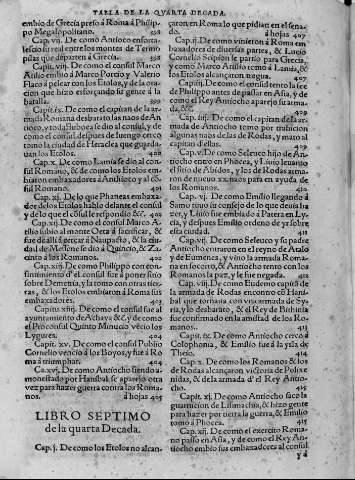 TABLA DE LA QVARTA DECADA.
embio de Grecia preso à Roma à Philip-
po Megalopolitano. 398
Cap. vij. De como Antioco enforta-
lescio su real entre los montes de Termo
pilas que departen à Grecia.
Capit. viij. De como el consul Marco
Atilio embio à Marco Portio y Valerio
Flaco à pelear con los Etolos, y de la ora-
cion que hizo esforçando su gente à la
batalla. 399
Capit. ix. De como el capitan de la ar-
mada Romana desbarato las naos de An-
tioco, y todas sobre si dio al consul, y de
como el consul despues de luengo cerco
tomo la ciudad de Heraclea que guarda-
uan los Etolos. 400
Cap. x. De como Lamia se dio al con-
sul Romano, & de como los Etolos em-
biaron embaxadores à Antioco y al cõ-
sul Romano. 401
Cap. xj. De lo que Phaneas embaxa-
dor delos Etolos hablo delante el consul
y de lo que el consul le respondio &c.
Cap. xij. De como el consul Marco A-
tilio subio al monte Oeta à sacrificar, &
fue de alli à cercar à Naupacto, & la ciu-
dad de Messene se dio à Quincio, & Za-
cinto à los Romanos. 402
Cap. xiij. De como Philippo con con-
sentimiento d'el consul fue à poner sitio
sobre Demetria, y la tomo con otras tier-
ras, & los Etolos embiaron à Roma sus
embaxadores. 403
Capit. xiiij. De como el consul fue al
ayuntamiento de Achaya &c. y de como
el Proconsul Quinto Minucio vécio los
Lygures. 404
Capit. xv. De como el consul Publio
Cornelio vencio à los Boyos, y fue à Ro
ma à triumphar.
Ca. xvj. De como Antioco siendo a-
monestado por Hanibal se aparejo otra
vez para hazer guerra contra los Roma-
nos. à hojas 405
LIBRO SEPTIMO
de la quarta Decada.
Cap. j. De como los Etolos no alcan-
çaron en Roma lo que pidian en el sena-
do. à hojas 407
Cap. ij. De como vinieron à Roma em
baxadores de diuersas partes, & Lucio
Cornelio Scipion se partio para Grecia,
y como Marco Atilio tomo à Lamia, &
los Etolos alcançaron tregua.
Capit. iij. De como el consul tento la fee
de Philippo antes de passar en Asia, y de
como el Rey Antioco aparejo su arma-
da, &c. 409
Cap. iiij. De como el capitan de la ar-
mada de Antioco tomo por traicion
algunas naos de las de Rodas, y mato al
capitan d'ellas. 409
Cap. v. De como Seleuco hijo de An-
tioco entro en Phocea, y Liuio leuanto
el sitio de Abidos, y los de Rodas arma-
ron de nueuo xx. naos para en ayuda de
los Romanos. 410
Cap. vj. De como Emilio llegando à
Samo tuuo su consejo de lo que deuia ha
zer, y Liuio fue embiado à Patera en Ly-
cia, y despues Emilio ordeno de yr sobre
esta ciudad. 411
Cap. vij. De como Seleuco y su padre
Antioco entraron en el reyno de Atalo
y de Eumenes, y vino la armada Roma-
na en socorro, & Antioco tento con los
Romanos la paz, y le fue negada.
Cap. viij. De como Eudemo capitã de
la armada de Rodas encontro cõ Hani-
bal que tornaua con vna armada de Sy-
ria, y lo desbarato, & el Rey de Bithinia
fue confirmado en la amistad de los Ro-
manos. 413
Capit. ix. De como Antioco cerco à
Colophonia, & Emilio fue à la ysla de
Theio. 414
Cap. x. De como los Romanos & los
de Rodas alcançaron victoria de Polixe
nidas, & dela armada d'el Rey Antio-
cho.
Capit. xj. De como Antioco saco la
guarnicion de Lisimachia, & hizo gente
para hazer por tierra la guerra, & Emilio
tomo à Phocea. 415
Cap. xij. De como el exercito Roma-
no passo en Asia, y de como el Rey An-
tiocho embio sus embaxadores al consul
y à